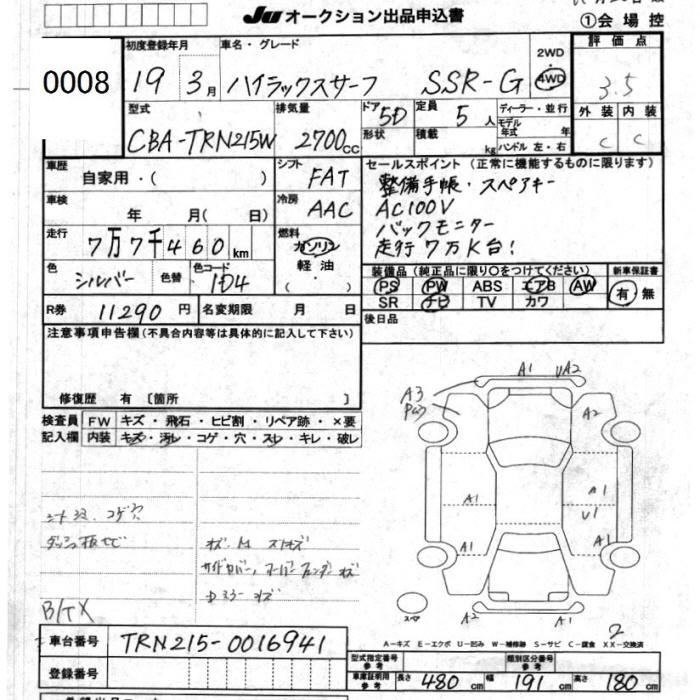 JU オークション出品申込書
①会場控
0008
初度登録年月 車名・グレード 2WD 4WD 評価点
19 3月 ハイラックスサーフ SSR-G 3.5
型式 排気量 ドア 定員 ディーラー・並行 外装 内装
CBA-TRN215W 2700cc 5D 5人 モデル年式 年 C C
形状 積載 kg ハンドル 左・右
車歴 シフト セールスポイント(正常に機能するものに限ります)
自家用・( ) FAT 整備手帳・スペアキー
車検 冷房 AC100V
年 月( 日) AAC バックモニター
走行 燃料 走行7万K台!
7万7千460km ガソリン
軽油・( )
色 色替 色コード 装備品(純正品に限り○をつけてください) 新車保証書
シルバー 1D4 PS PW ABS エアB AW 有 無
SR ナビ TV カワ
R券 11290円 名変期限 月 日 後日品
注意事項申告欄(不具合内容等は具体的に記入して下さい)
修復歴 有 〔箇所 〕
検査員 FW キズ・飛石・ヒビ割・リペア跡・×要
記入欄 内装 キズ・汚レ・コゲ・穴・スレ・キレ・破レ
A1 UA2
A3
A2
A1 A1 A1 U1
A1 A1
スペア A2 A1
2
B/TX
車台番号 TRN215-0016941
A-キズ E-エクボ U-凹み W-補修跡 S-サビ C-腐食 XX-交換済
登録番号
型式指定番号 参考 類別区分番号 参考
車庫証明用 参考 長さ 480cm 幅 191cm 高さ 180cm